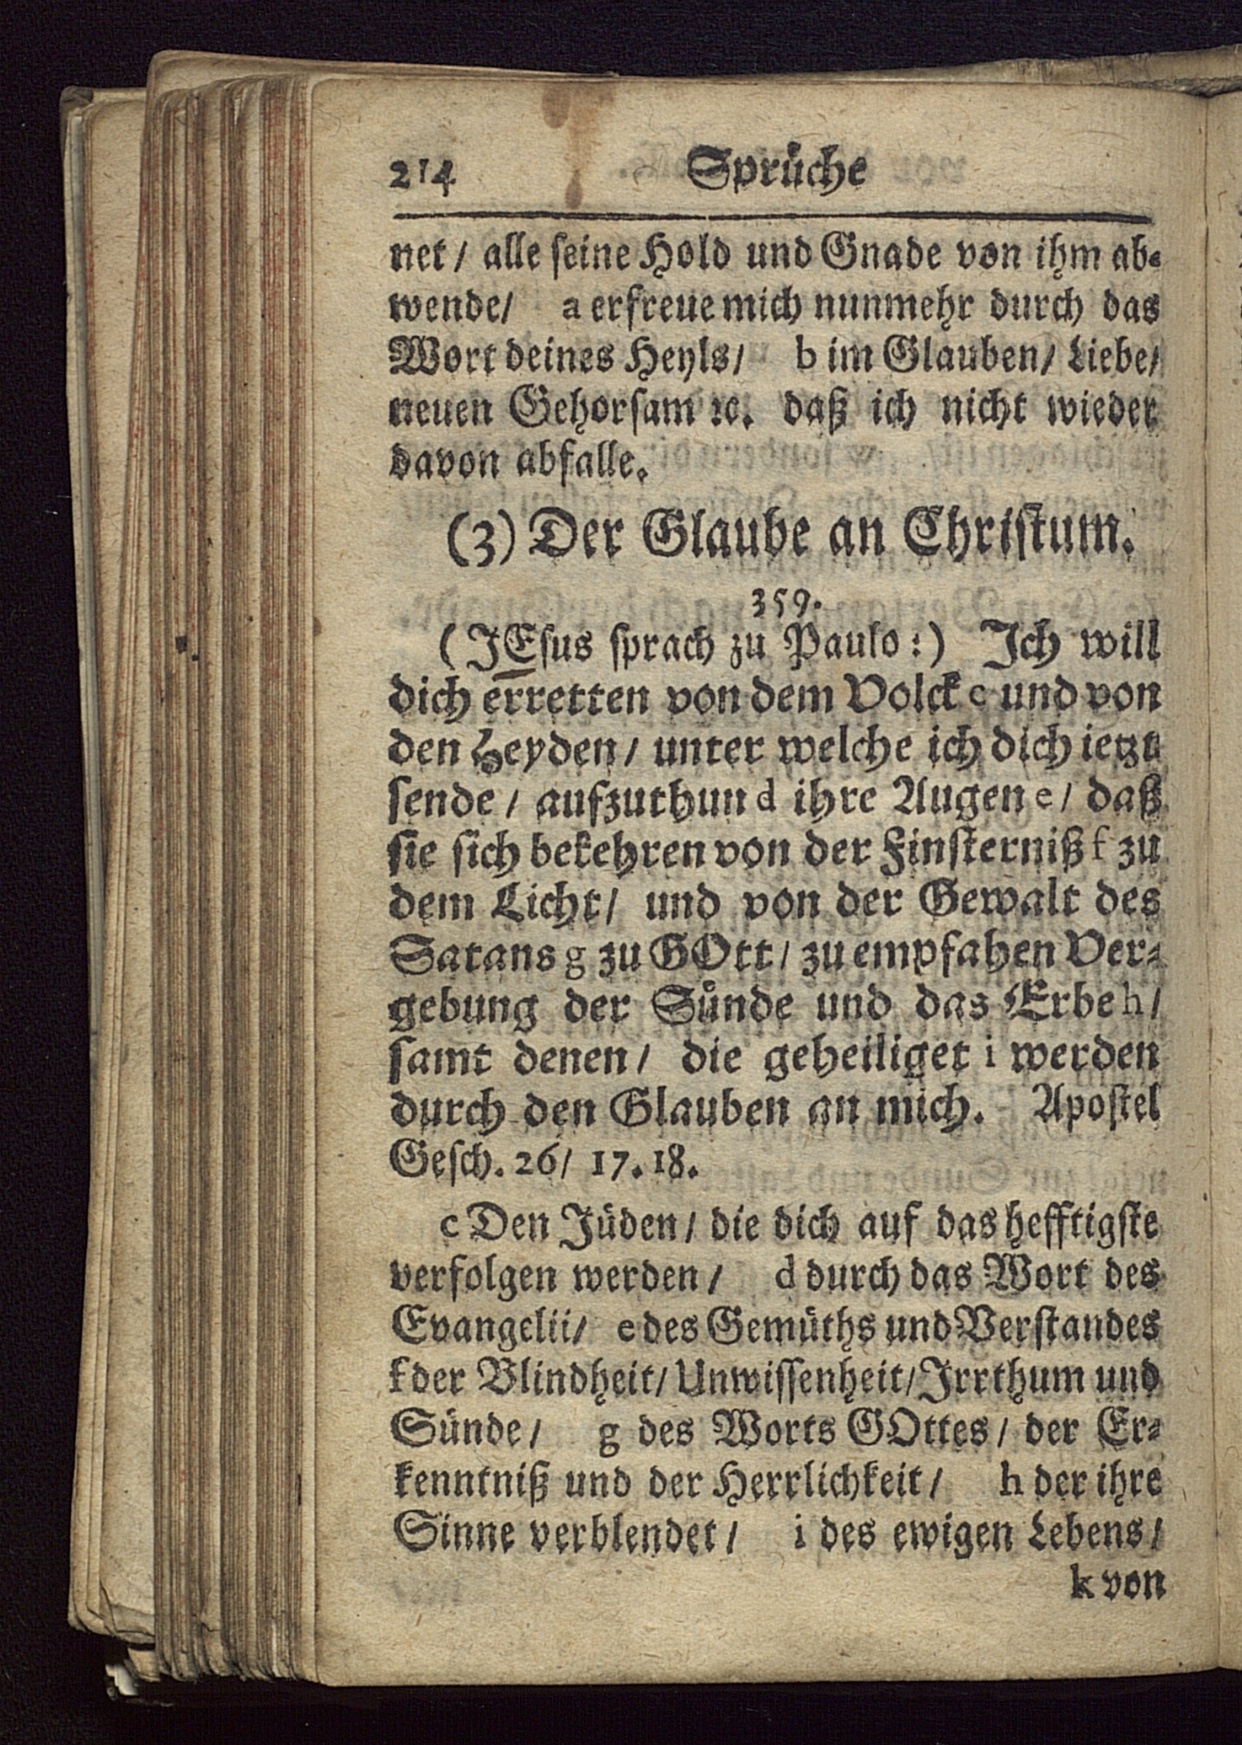 214 Sprüche
net / alle seine Hold und Gnade von ihm ab-
wende/ a erfreue mich nunmehr durch das
Wort deines Heyls/ b im Glauben/ Liebe/
neuen Gehorsam ꝛc. daß ich nicht wieder
davon abfalle.
(3) Der Glaube an Christum.
359.
(JEsus sprach zu Paulo:) Jch will
dich erretten von dem Volck c und von
den Heyden/ unter welche ich dich ietzt
sende / aufzuthun d ihre Augen e/ daß
sie sich bekehren von der Finsterniß f zu
dem Licht/ und von der Gewalt des
Satans g zu GOtt/ zu empfahen Ver-
gebung der Sünde und das Erbe h/
samt denen/ die geheiliget i werden
durch den Glauben an mich. Apostel
Gesch. 26/ 17. 18.
c Den Jüden/ die dich auf das hefftigste
verfolgen werden/ d durch das Wort des
Evangelii/ e des Gemüths und Verstandes
f der Blindheit/ Unwissenheit/ Jrrthum und
Sünde/ g des Worts GOttes/ der Er-
kenntniß und der Herrlichkeit/ h der ihre
Sinne verblendet/ i des ewigen Lebens/
k von